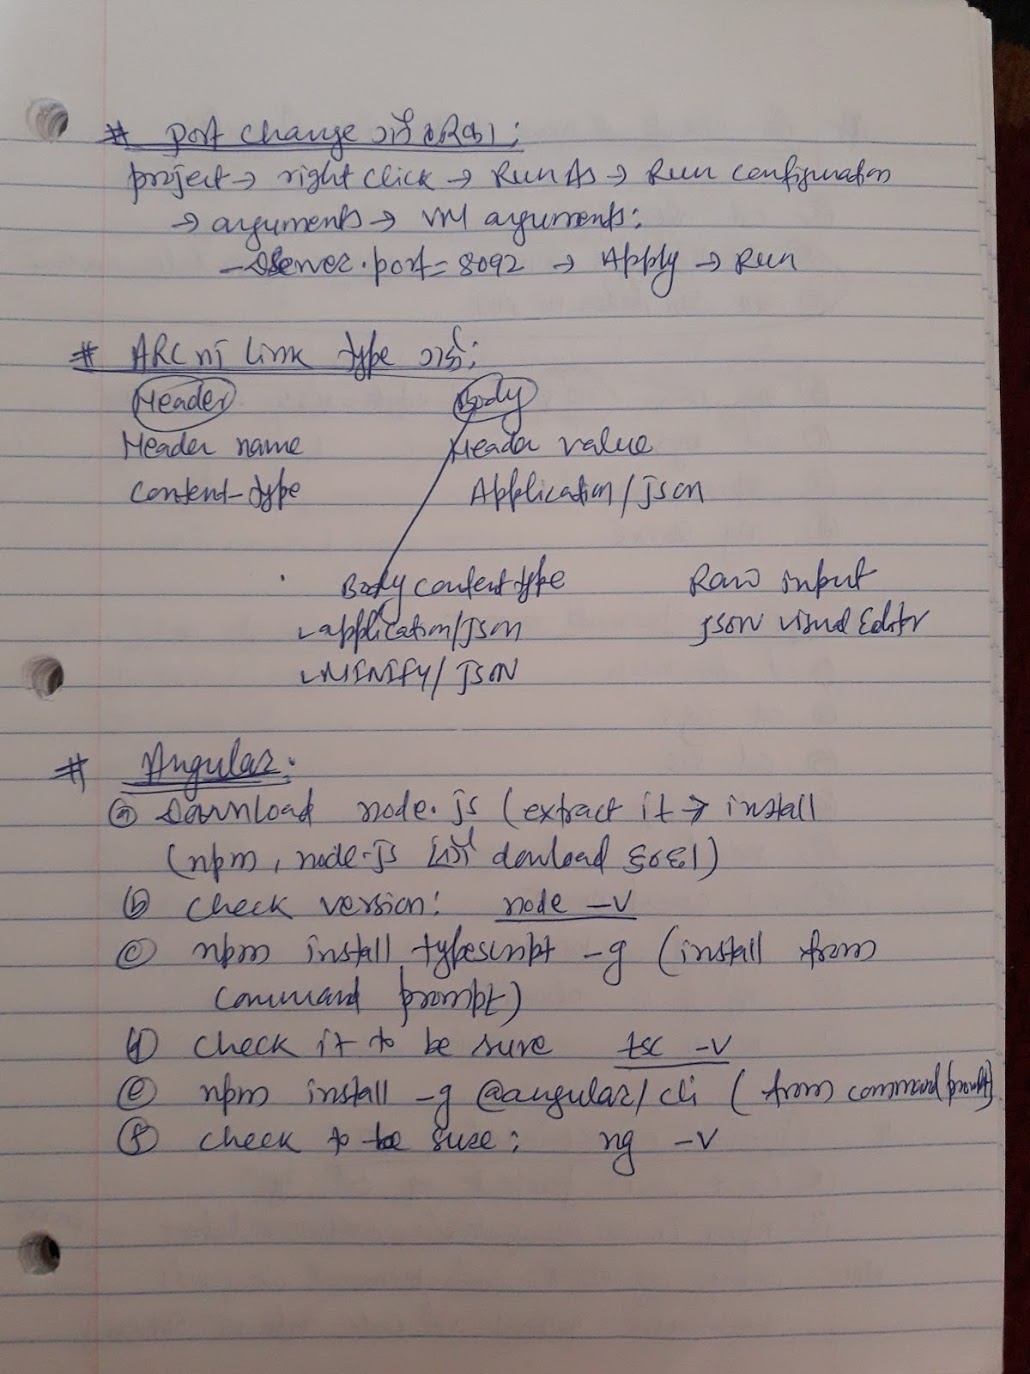 # port change
project → right click → Run As → Run configuration
→ arguments → VM arguments:
-Dserver.port=8092 → Apply → Run
# ARC ni Link type
Header Body
Header name Header value
Content-type Application/json
Body content type Raw input
application/json JSON visual Editor
MINIFY/JSON
# Angular:
(a) Download node.js (extract it → install
(npm, node-js download
(b) check version: node -v
(c) npm install typescript -g (install from
command prompt)
(d) check it to be sure tsc -v
(e) npm install -g @angular/cli (from command prompt)
(f) check to be sure: ng -v